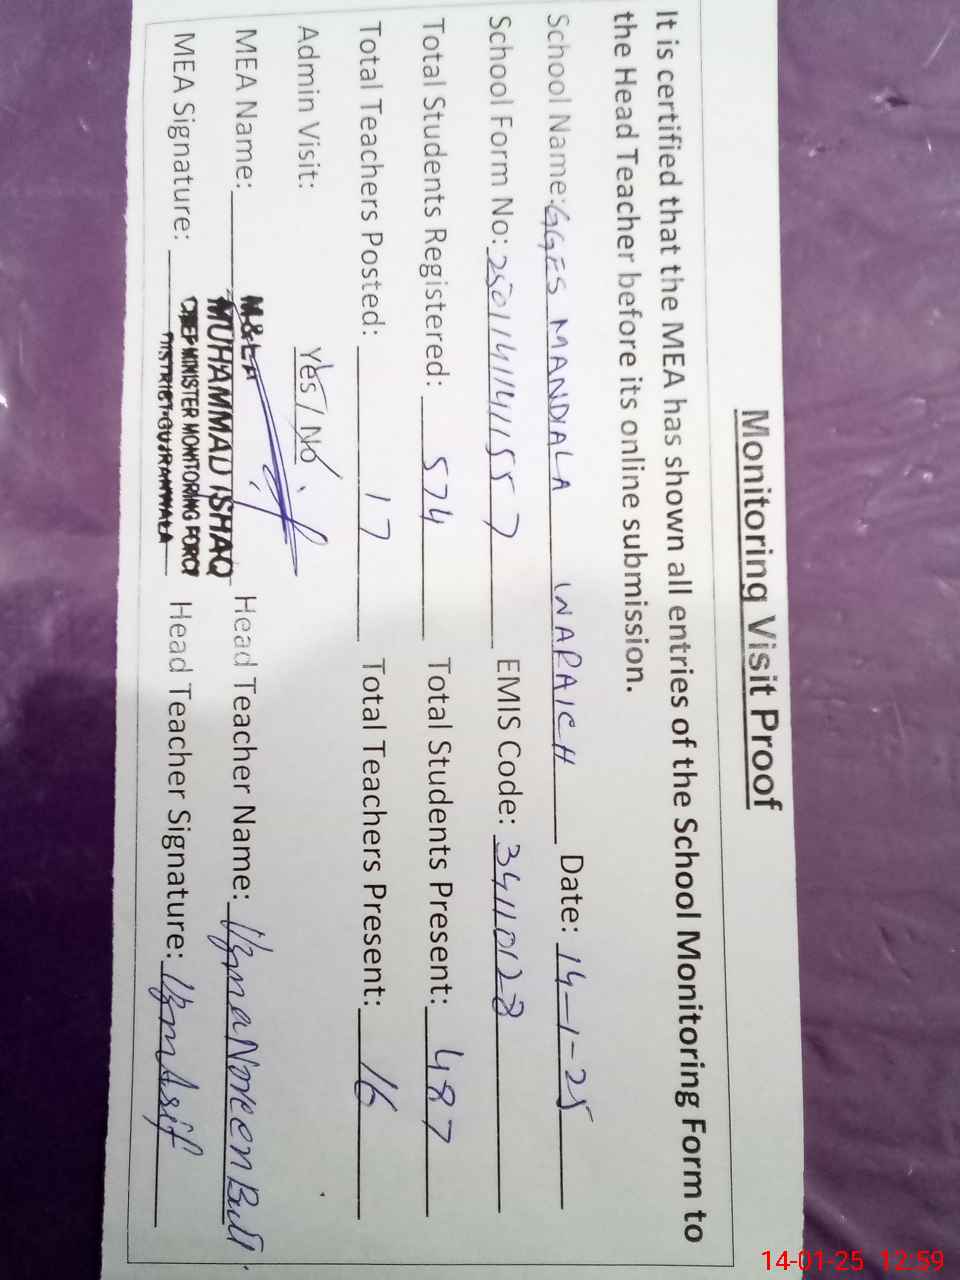 Monitoring Visit Proof
It is certified that the MEA has shown all entries of the School Monitoring Form to
the Head Teacher before its online submission.
School Name: GGES MANDIALA WARAICH Date: 14-1-25
School Form No: 25011414114155 7 EMIS Code: 34110128
Total Students Registered: 574 Total Students Present: 487
Total Teachers Posted: 17 Total Teachers Present: 16
Admin Visit: Yes / No
M&EA
MEA Name: MUHAMMAD ISHAQ Head Teacher Name: Uzma Noreen Butt
CHIEF MINISTER MONITORING FORCE
MEA Signature: DISTRICT GUJRANWALA Head Teacher Signature: Uzm Asif
14-01-25 12:59